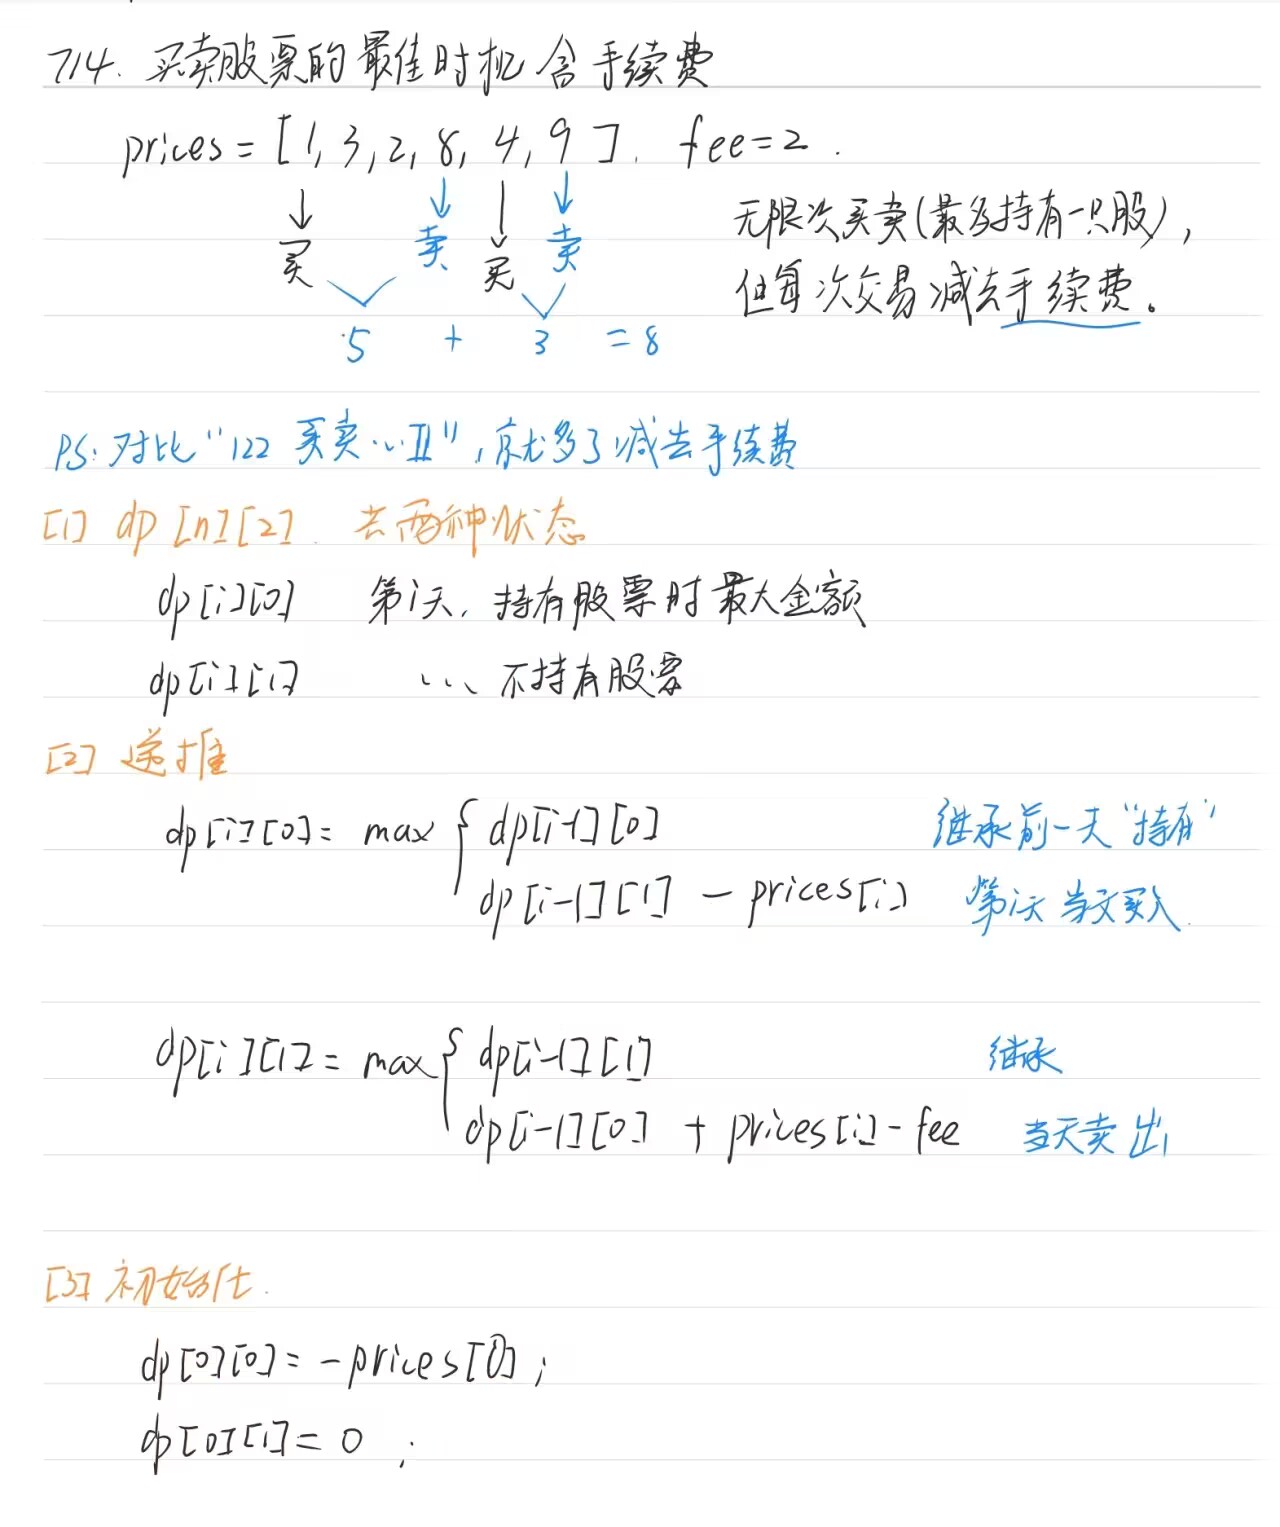 714. 买卖股票的最佳时机含手续费
prices = [1, 3, 2, 8, 4, 9]. fee=2.
买 卖 买 卖
5 + 3 = 8
无限次买卖(最多持有一只股),
但每次交易减去手续费。
PS: 对比“122 买卖…Ⅱ”, 就多了减去手续费
[1] dp[n][2]. 共两种状态
dp[i][0] 第i天, 持有股票时最大金额
dp[i][1] 、、、 不持有股票
[2] 递推
dp[i][0] = max { dp[i-1][0] 继承前一天“持有”
dp[i-1][1] - prices[i] 第i天当天买入.
dp[i][1] = max { dp[i-1][1] 继承
dp[i-1][0] + prices[i] - fee 当天卖出
[3] 初始化.
dp[0][0] = -prices[0];
dp[0][1] = 0 ;